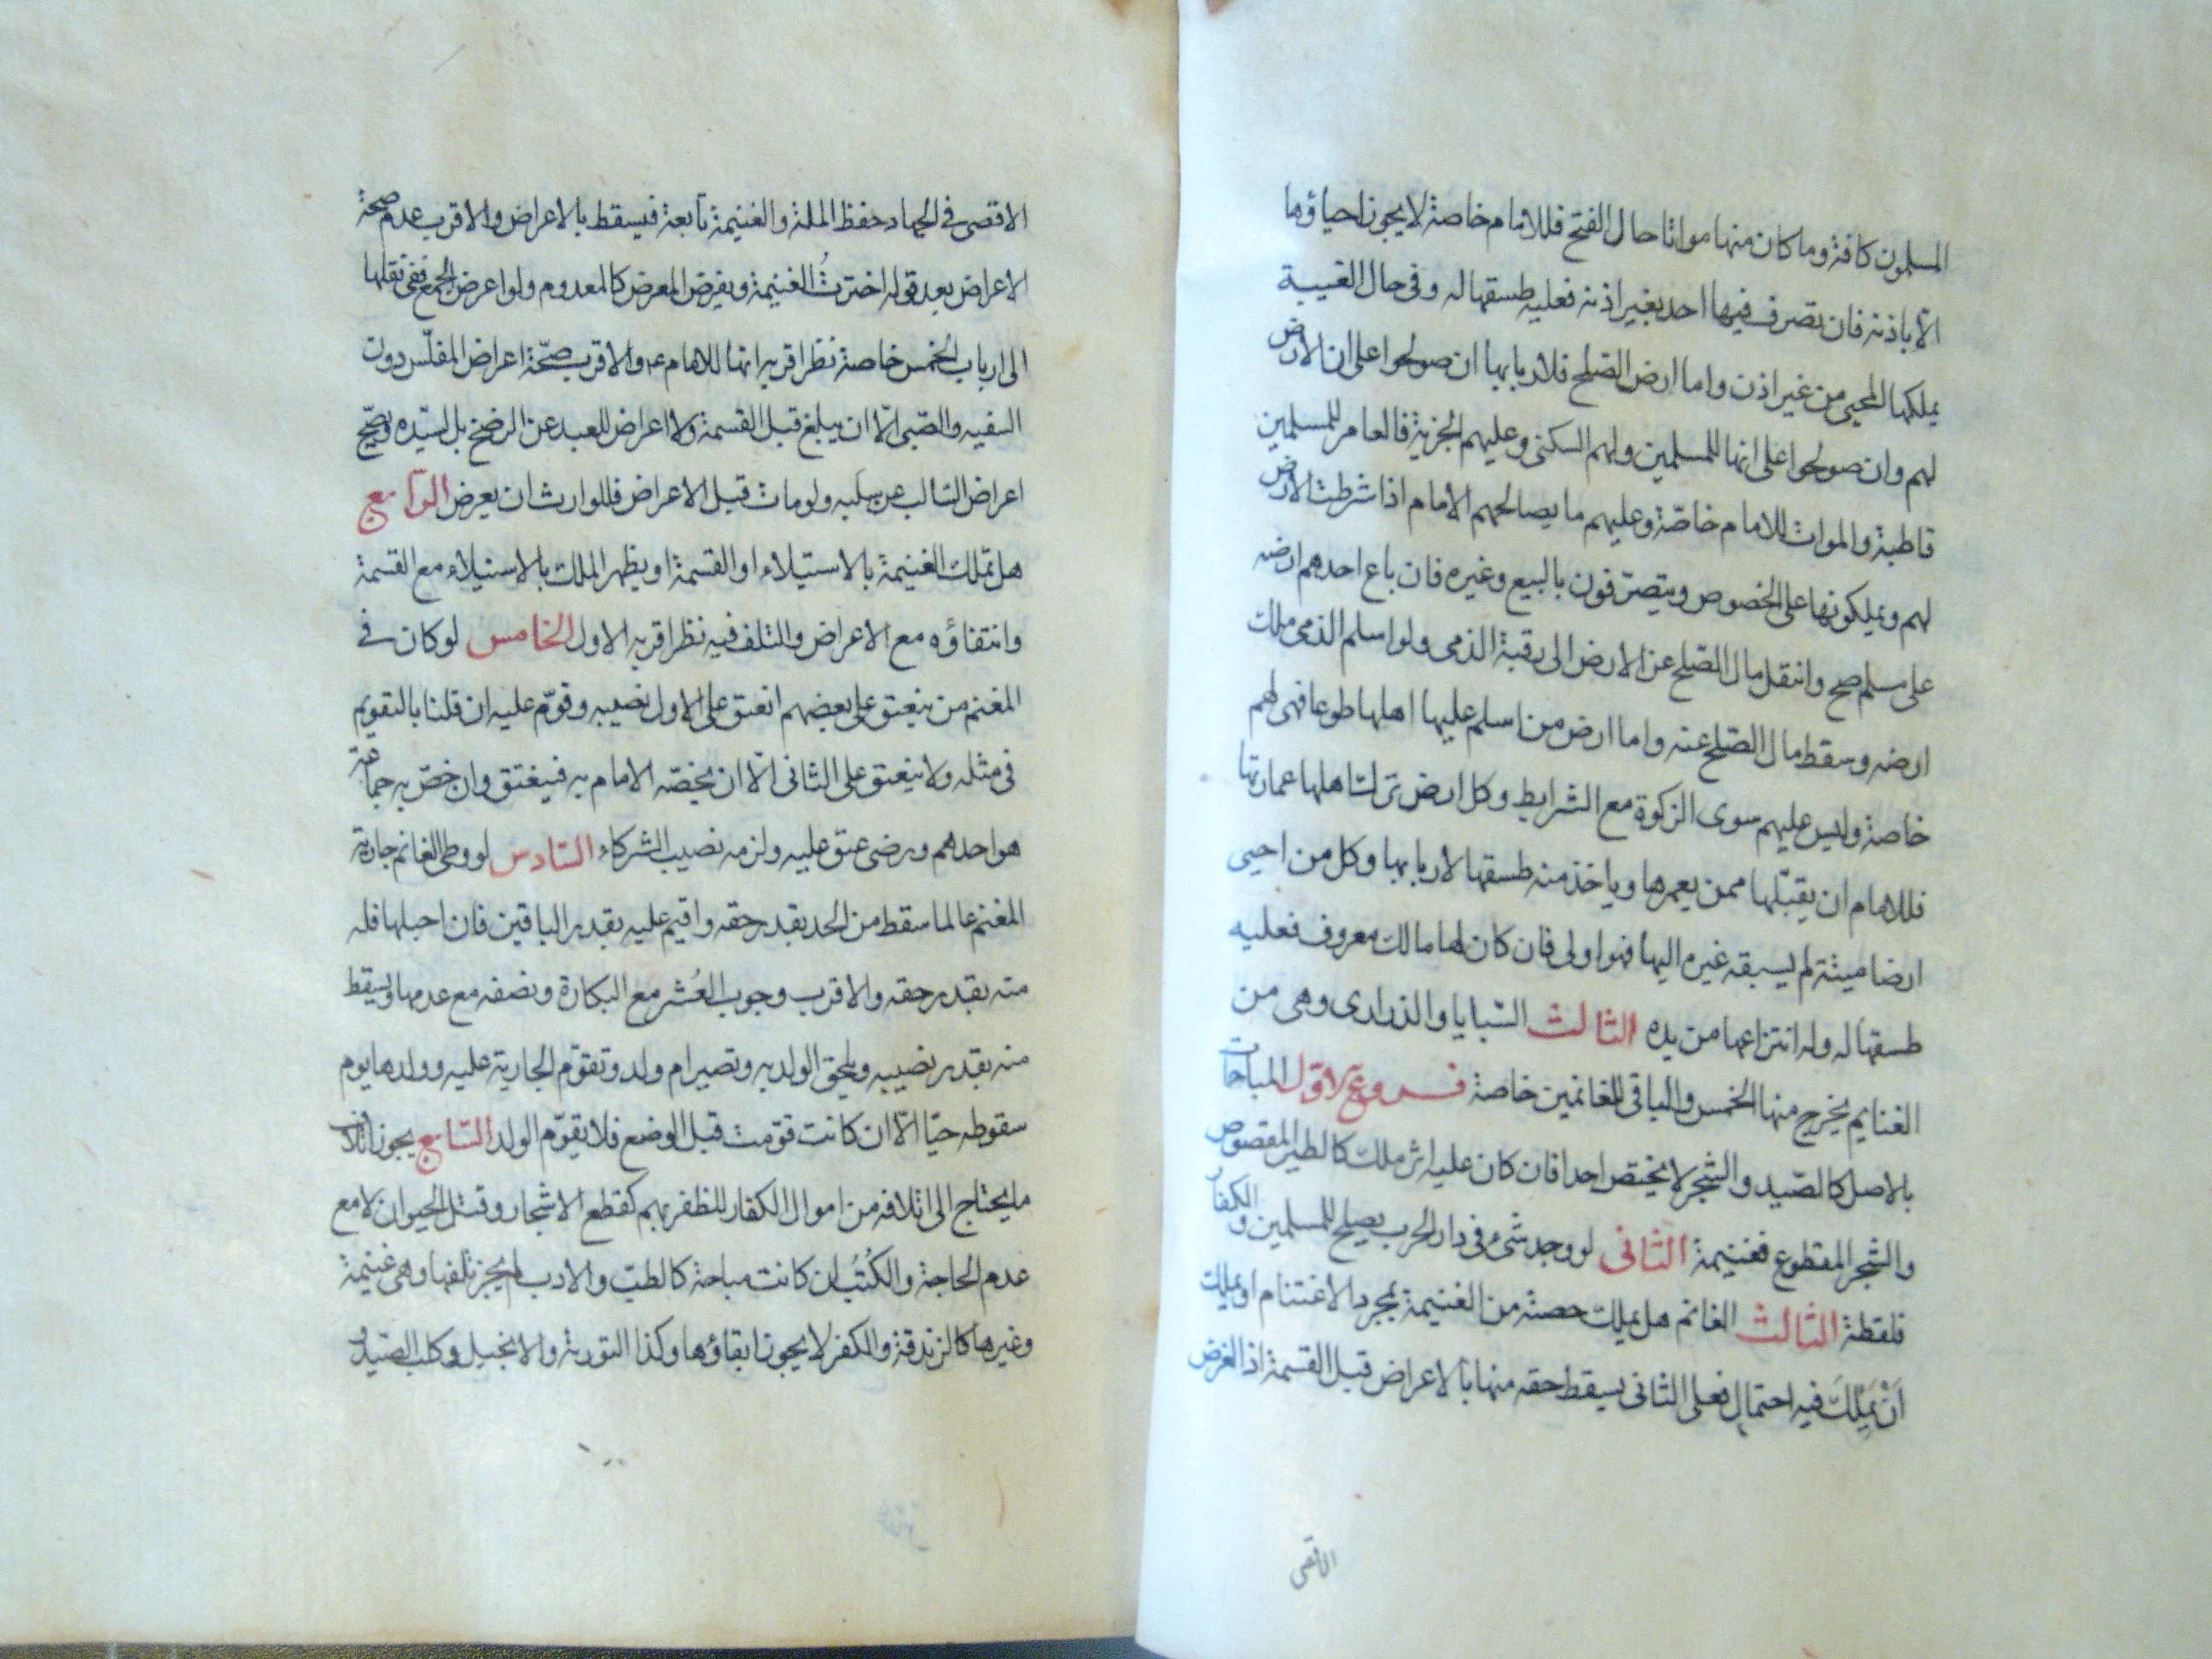 المسلمون كافة وما كان منها مواتا حال الفتح فللامام خاصة لا يجوز احياؤها
الا باذنه فان تصرف فيها احد بغير اذنه فعليه طسقها له وفى حال الغيبة
يملكها المحيى من غير اذن واما ارض الصلح فلاربابها ان صولحوا على ان الارض
لهم وان صولحوا على انها للمسلمين ولهم السكنى وعليهم الجزية فالعامر للمسلمين
قاطبة والموات للامام خاصّة وعليهم ما يصالحهم الامام اذا شرطت الارض
لهم ويملكونها على الخصوص ويتصرّفون بالبيع وغيره فان باع احدهم ارضه
على مسلم صح وانتقل مال الصّلح عن الارض الى رقبة الذمى ولو اسلم الذمى ملك
ارضه وسقط مال الصّلح عنه واما ارض من اسلم عليها اهلها طوعا فهى لهم
خاصة وليس عليهم سوى الزكوة مع الشرايط وكل ارض ترك اهلها عمارتها
فللامام ان يقبّلها ممن يعمرها وياخذ منه طسقها لاربابها وكل من احيى
ارضا ميتة لم يسبقه غيره اليها فهو اولى فان كان لها مالك معروف فعليه
طسقها له وله انتزاعها من يده الثالث السّبايا والذرارى وهى من
الغنايم يخرج منها الخمس والباقى للغانمين خاصة فروع الاوّل المباحات
بالاصل كالصّيد والشجر لا يختص احدا فان كان عليه اثر ملك كالطير المقصوص
والشجر المقطوع فغنيمة الثانى لو وجد شئ فى دار الحرب يصلح للمسلمين والكفار
فلقطة الثالث الغانم هل يملك حصته من الغنيمة بمجرد الاغتنام او يملك
اَنْ يَمْلِكَ فيه احتمال فعلى الثانى يسقط حقه منها بالاعراض قبل القسمة اذ الغرض
الاقصى
الاقصى فى الجهاد حفظ الملة والغنيمة تابعة فيسقط بالاعراض والاقرب عدم صحة
الاعراض بعد قوله اخترتُ الغنيمة ويفرض المعرض كالمعدوم ولو اعرض الجمع ففى نقلها
الى ارباب الخمس خاصة نظر اقربه انها للامام ع والاقرب صحّة اعراض المفلّس دون
السفيه والصّبى الّا ان يبلغ قبل القسمة ولا اعراض للعبد عن الرضخ بل لسيّده ويصّح
اعراض السّالب عن سلبه ولو مات قبل الاعراض فللوارث ان يعرض الرّابع
هل تملك الغنيمة بالاستيلاء او القسمة او يظهر الملك بالاستيلاء مع القسمة
وانتفاؤه مع الاعراض والتلف فيه نظر اقربه الاول الخامس لو كان فى
المغنم من ينعتق على بعضهم انعتق على الاول نصيبه وقوّم عليه ان قلنا بالتقويم
فى مثله ولا ينعتق على الثانى الّا ان يخصّه الامام به فيعتق وان خصّ به جماعة
هو احدهم ورضى عتق عليه ولزمه نصيب الشركاء السّادس لو وطى الغانم جارية
المغنم عالما سقط من الحد بقدر حقه واقيم عليه بقدر الباقين فان احبلها فله
منه بقدر حقه والاقرب وجوب العُشر مع البكارة ونصفه مع عدمها ويسقط
منه بقدر نصيبه ويلحق الولد به وتصير ام ولد وتقوّم الجارية عليه وولدها يوم
سقوطه حيّا الّا ان كانت قوّمت قبل الوضع فلا يقوّم الولد السّابع يجوز اتلاف
ما يحتاج الى اتلافه من اموال الكفار للظفر بهم كقطع الاشجار وقتل الحيوان لا مع
عدم الحاجة والكُتُبُ ان كانت مباحة كالطبّ والادب لم يجز تلفها وهى غنيمة
وغيرها كالزندقة والكفر لا يجوز ابقاؤها وكذا التورية والانجيل وكلب الصّيد